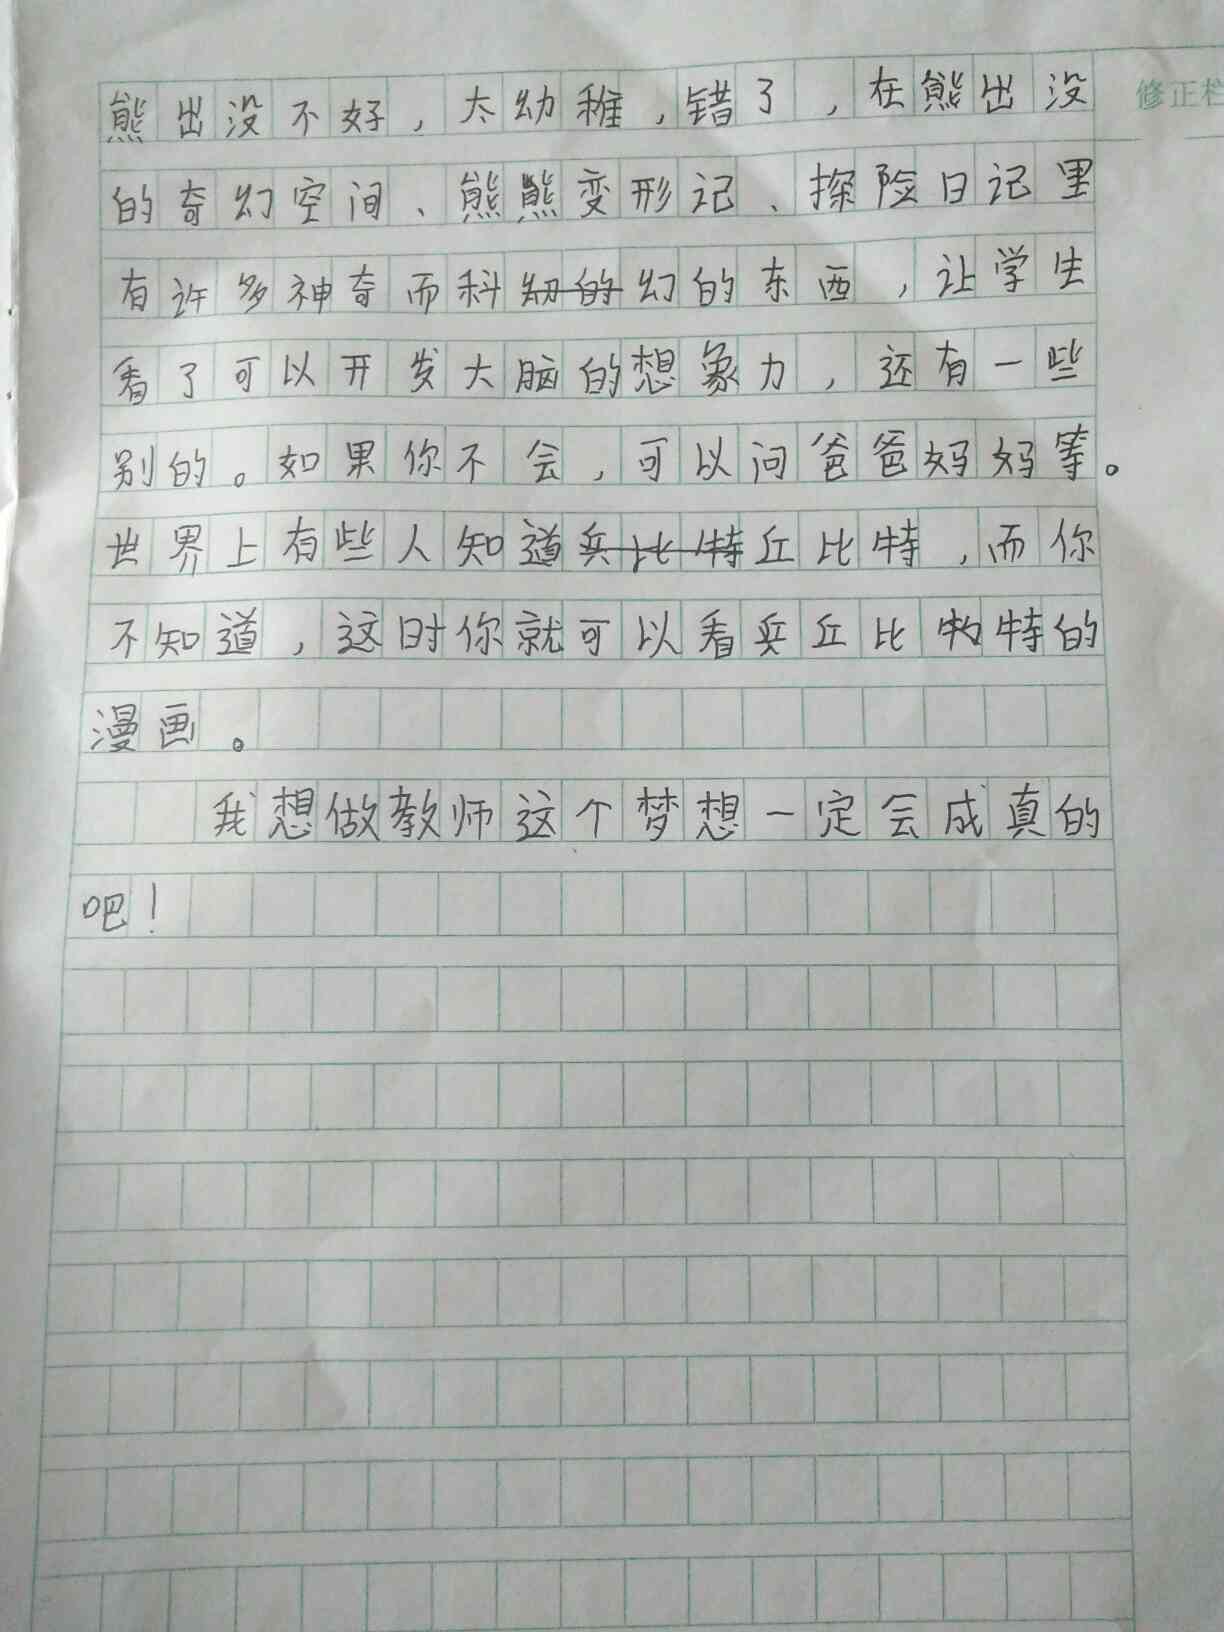 熊出没不好，太幼稚，错了，在熊出没
修正栏
的奇幻空间、熊熊变形记、探险日记里
有许多神奇而科幻的幻的东西，让学生
看了可以开发大脑的想象力，还有一些
别的。如果你不会，可以问爸爸妈妈等。
世界上有些人知道兵比特丘比特，而你
不知道，这时你就可以看兵丘比特的
漫画。
我想做教师这个梦想一定会成真的
吧！